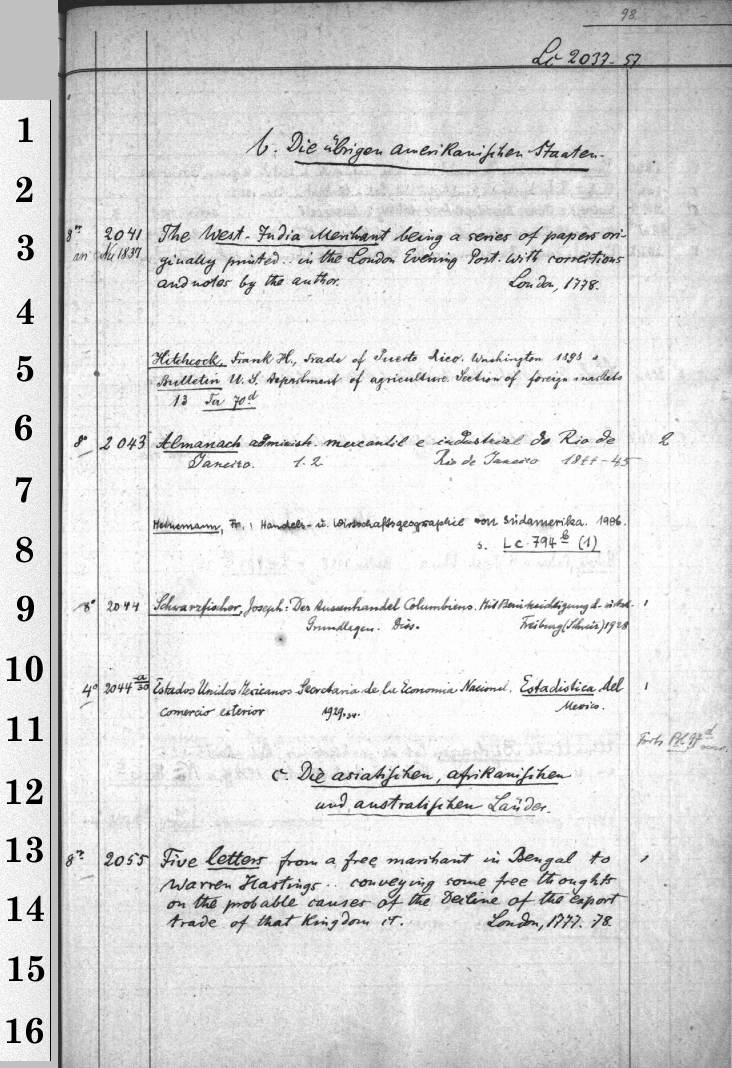 98
Lc 2037-57
b. Die übrigen amerikanischen Staaten.
8° 2041 The West-India Merchant being a series of papers ori-
an Nu 1837 ginally printed.. in the London Evening Post. With corrections
and notes by the author. London, 1778.
Hitchcock, Frank H., Trade of Puerto Rico. Washington 1898
Bulletin U. S. Department of agriculture. Section of foreign markets
13
8° 2043 Almanach administr. mercantil e industrial do Rio de 2
Janeiro. 1. 2 Rio de Janeiro 1844-45
Heinemann, Fr.: Handels- u. Wirtschaftsgeographie von Südamerika. 1906.
s. Lc. 794 b (1)
8° 2044 Schwarzfischer, Joseph: Der Aussenhandel Columbiens. Mit Berücksichtigung d. 1
Grundlagen. Diss. Freiburg (Schweiz) 1928
4° 2044 a/30 Estados Unidos Mexicanos Secretaria de la Economia Nacional. Estadistica del 1
comercio exterior 1929. Mexico.
Forts
c. Die asiatischen, afrikanischen
und australischen Länder.
8° 2055 Five letters from a free marchant in Bengal to 1
Warren Hastings .. conveying some free thoughts
on the probable causes of the decline of the export
trade of that Kingdom London, 1777. 78.
1
2
3
4
5
6
7
8
9
10
11
12
13
14
15
16